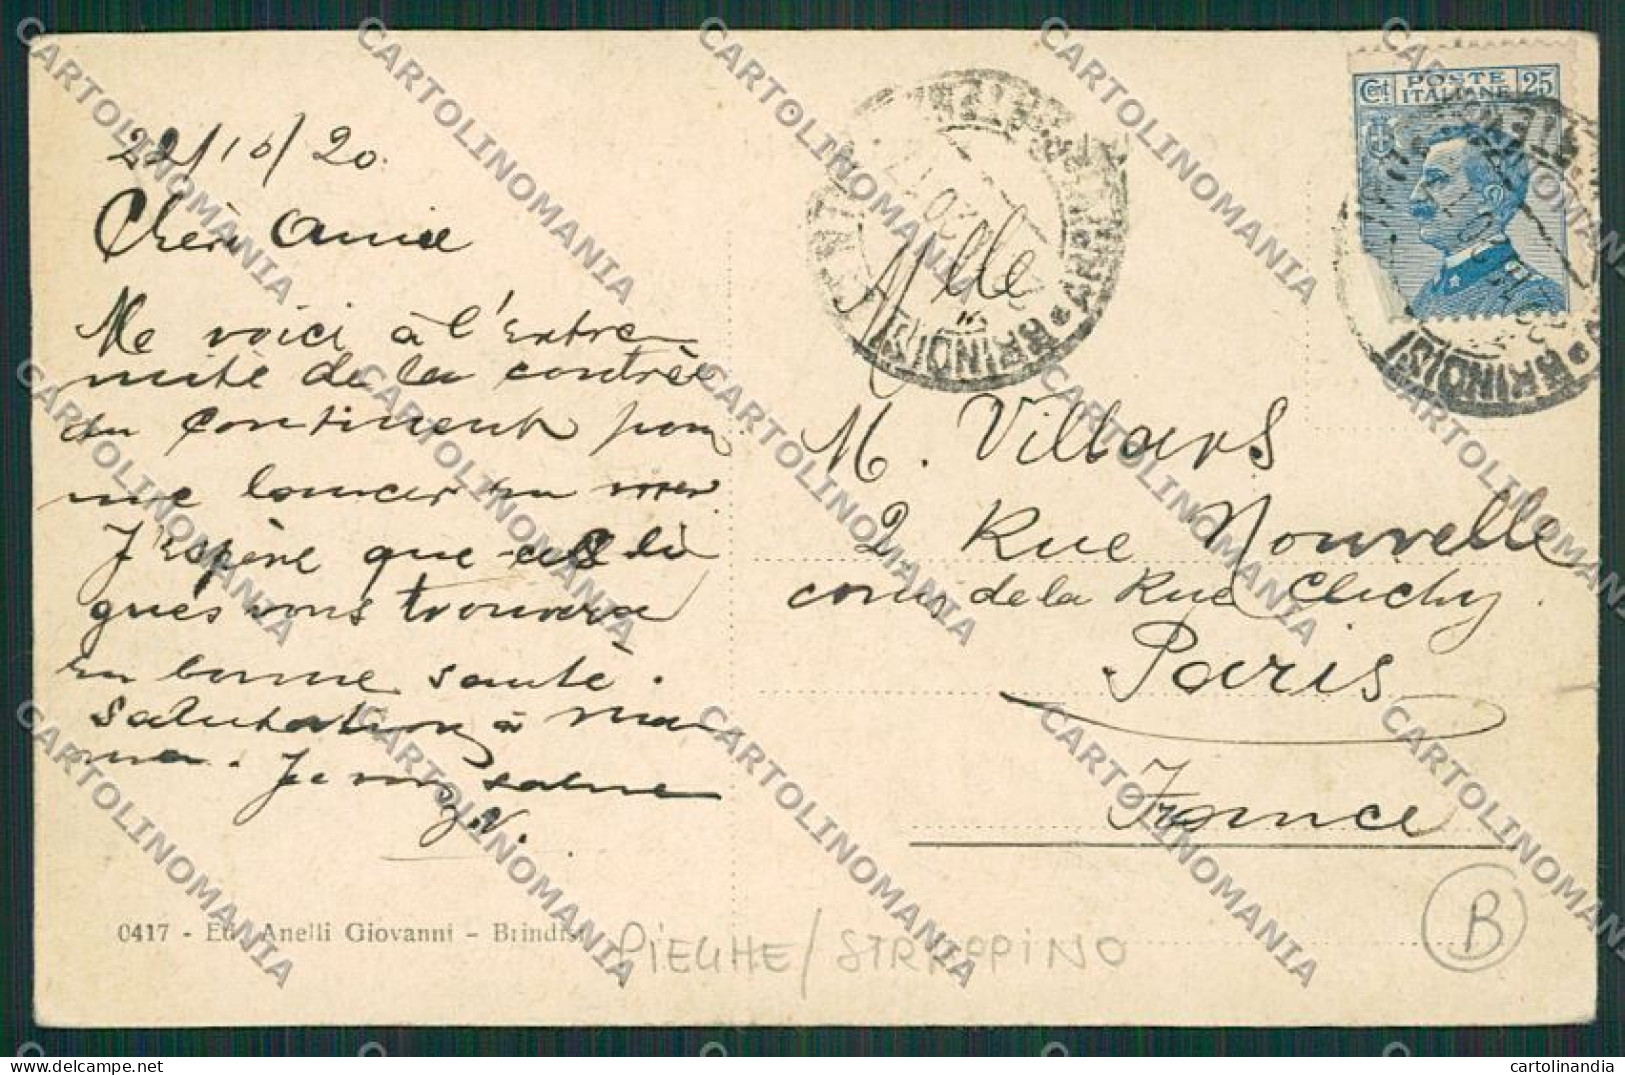 22/10/20.
Chère Amie
Me voici à l'extre
mité de la contrée
du continent pour
me lancer en mer.
J'espère que ces li
gnes vous trouvera
en bonne santé.
Salutation à ma
ma. Je vous salue
J.V.
0417 - Ed. Anelli Giovanni - Brindisi
PIEGHE/STRAPPINO
Melle
M. Villars
2 Rue Nouvelle
de la Rue Clichy.
Paris
France
B
BRINDISI
POSTE
ITALIANE
Cent 25
BRINDISI
CARTOLINOMANIA
cartolinandia